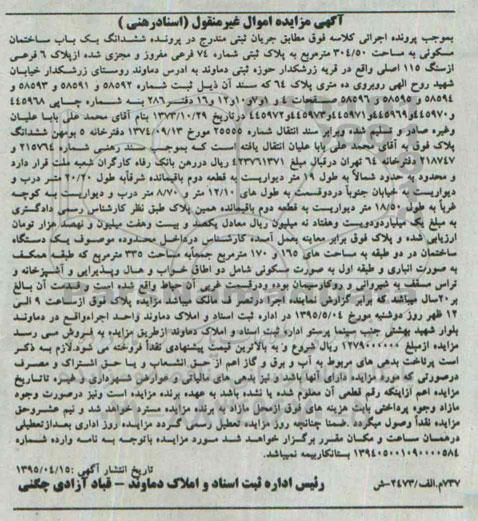 آگهی مزایده اموال غیرمنقول (اسنادرهنی)
بموجب پرونده اجرائی کلاسه فوق مطابق جریان ثبتی مندرج در پرونده ششدانگ یک باب ساختمان
مسکونی به مساحت ۳۰۴/۵۰ مترمربع به پلاک ثبتی شماره ۷۴ فرعی مفروز و مجزی شده ازپلاک ۶ فرعی
ازسنگ ۱۱۵ اصلی واقع در قریه زرشکدار حوزه ثبتی دماوند به ادرس دماوند روستای زرشکدار خیابان
شهید روح الهی روبروی ده متری پلاک ۶۴ که سند آن ذیل ثبت شماره ۵۸۵۹۲ و ۵۸۵۹۱ و ۵۸۵۹۳ و
۵۸۵۹۴ و ۵۸۵۹۵ و ۵۸۵۹۶ صفحات ۴و۱و۷و۱۰و۱۲و ۱۶ دفتر ۲۸۶ بنه شماره چاپی ۴۴۵۹۶۸
و۴۴۵۹۷۰و۴۴۵۹۶۹و۴۴۵۹۷۱و۴۴۵۹۷۳و۴۴۵۹۷۲ درتاریخ ۱۳۷۳/۱۰/۲۹ بنام آقای محمد علی بابا علیان
وغیره صادر و تسلیم شده وبرابر سند انتقال شماره ۲۵۵۵۵ مورخ ۱۳۷۴/۰۹/۱۳ دفترخانه ۵ بومهن ششدانگ
پلاک فوق به آقای محمد علی بابا علیان انتقال یافته است که بموجب سند رهنی شماره ۲۱۵۷۶۴ و
۲۱۸۷۴۷ دفترخانه ۶۴ تهران درقبال مبلغ ۴۲۳۷۶۱۳۷۱ ریال دررهن بانک رفاه کارگران شعبه ملت قرار دارد
و محدود به حدود شمالاً به طول ۱۹ متر دیواریست به قطعه دوم باقیمانده شرقاً به طول ۲۰/۲۰ متر درب و
دیواریست به خیابان جنوباً دردوقسمت به طول های ۱۲/۱۰ متر و ۸/۷۰ متر درب و دیواریست به کوچه
غرباً به طول ۱۸/۵۰ متر دیواریست به قطعه دوم باقیمانده همین پلاک طبق نظر کارشناس رسمی دادگستری
به مبلغ یک میلیاردودویست وهفتاد نه میلیون ریال معادل یکصد و بیست وهفت میلیون و نهصد هزار تومان
ارزیابی شده و پلاک فوق برابر معاینه بعمل آمده کارشناس درداخل محدوده موصوف یک دستگاه
ساختمان در دو طبقه به مساحت های ۱۶۵ و ۱۷۰ مترمربع جمعاً به مساحت ۳۳۵ مترمربع که طبقه همکف
به صورت انباری و طبقه اول به صورت مسکونی شامل دو اطاق خواب و هال وپذیرایی و آشپزخانه و
تراس مسقف به شیروانی و روکارسیمان بوده ودرقسمت غربی آن حیاط واقع شده است و قدمت آن بالغ
بر ۲۰سال میباشد که برابر گزارش نماینده اجرا درتصرف مالک میباشد مزایده پلاک فوق ازساعت ۹ الی
۱۲ ظهر روز دوشنبه مورخ ۱۳۹۵/۵/۰۴ در اداره ثبت اسناد و املاک دماوند واحد اجراءواقع در دماوند
بلوار شهید بهشتی جنب سینما پرستو اداره ثبت اسناد و املاک دماوند ازطریق مزایده به فروش می رسد
مزایده ازمبلغ ۱۲۷۹۰۰۰۰۰۰ ریال شروع و به بالاترین قیمت پیشنهادی نقداً فروخته می شود.لازم به ذکر
است پرداخت بدهی های مربوط به آب و برق و گاز اعم از حق انشعاب و یا حق اشتراک و مصرف
درصورتی که مورد مزایده دارای آنها باشد و نیز بدهی های مالیاتی و عوارض شهرداری و غیره تاتاریخ
مزایده اعم ازاینکه رقم قطعی آن معلوم شده یا نشده باشد به عهده برنده مزایده است ونیز درصورت وجود
مازاد وجوه پرداختی بابت هزینه های فوق ازمحل مازاد به برنده مزایده مسترد خواهد شد و نیم عشروحق
مزایده نقداً وصول میگردد .ضمناً چنانچه روز مزایده تعطیل رسمی گردد مزایده روز اداری بعدازتعطیلی
درهمان ساعت و مکان مقرر برگزار خواهد شد مورد مزایده باتوجه به نامه وارده شماره
۱۳۹۴۰۵۰۰۱۰۹۰۰۰۰۵۸۴ بستانکاربیمه نمیباشد.
تاریخ انتشار آگهی :۱۳۹۵/۰۴/۱۵
رئیس اداره ثبت اسناد و املاک دماوند – قباد آزادی چگنی
۷۳۷م.الف/۲۴۷۳–ش